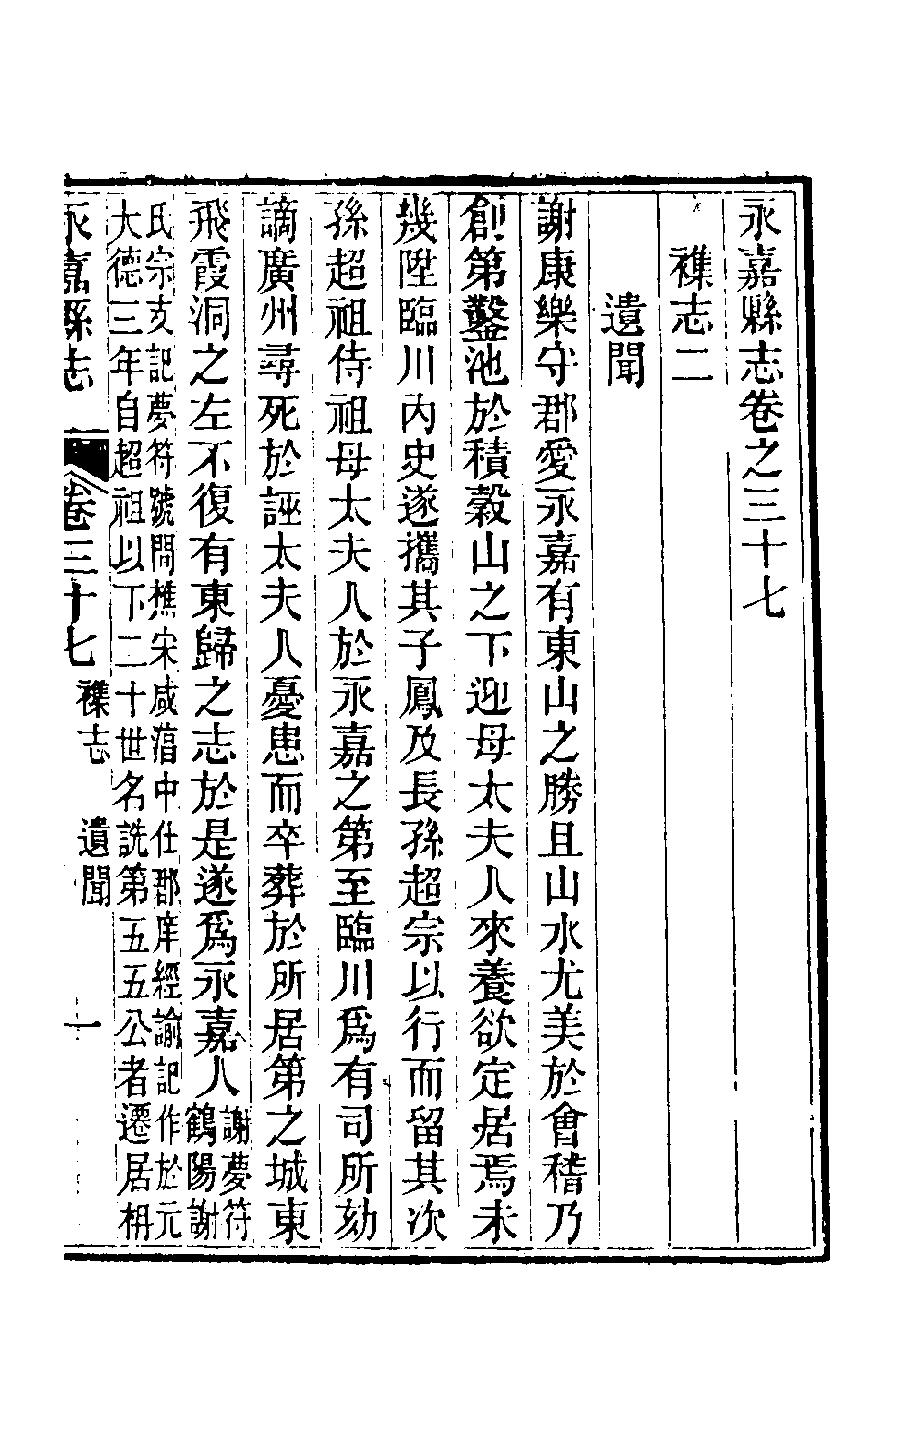 永嘉縣志卷之三十七
襍志二
遺聞
謝康樂守郡愛永嘉有東山之勝且山水尤美於會稽乃
創第鑿池於積穀山之下迎母太夫人來養欲定居焉未
幾陞臨川內史遂攜其子鳳及長孫超宗以行而留其次
孫超祖侍祖母太夫人於永嘉之第至臨川爲有司所劾
謫廣州尋死於誣太夫人憂患而卒葬於所居第之城東
飛霞洞之左不復有東歸之志於是遂爲永嘉人謝夢符鶴陽謝
氏宗支記夢符號問樵宋咸淳中仕郡庠經諭記作於元
大德三年自超祖以下二十世名詵第五五公者遷居枬
永嘉縣志 卷三十七 襍志 遺聞 一